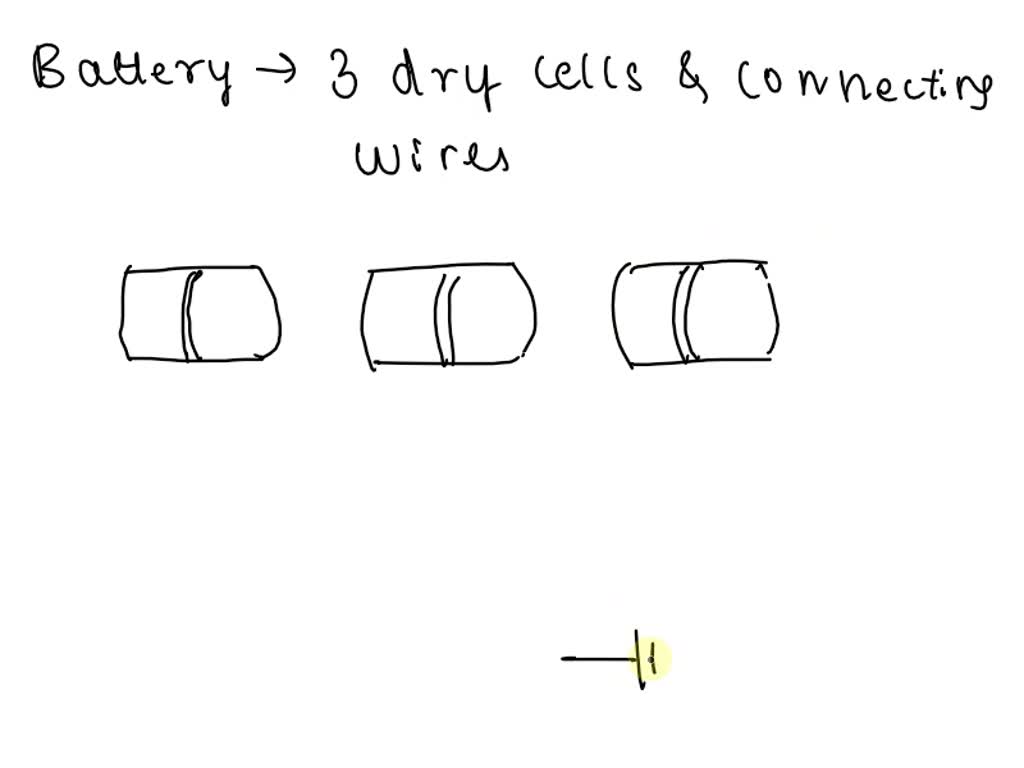 Battery → 3 dry cells & connecting
wires